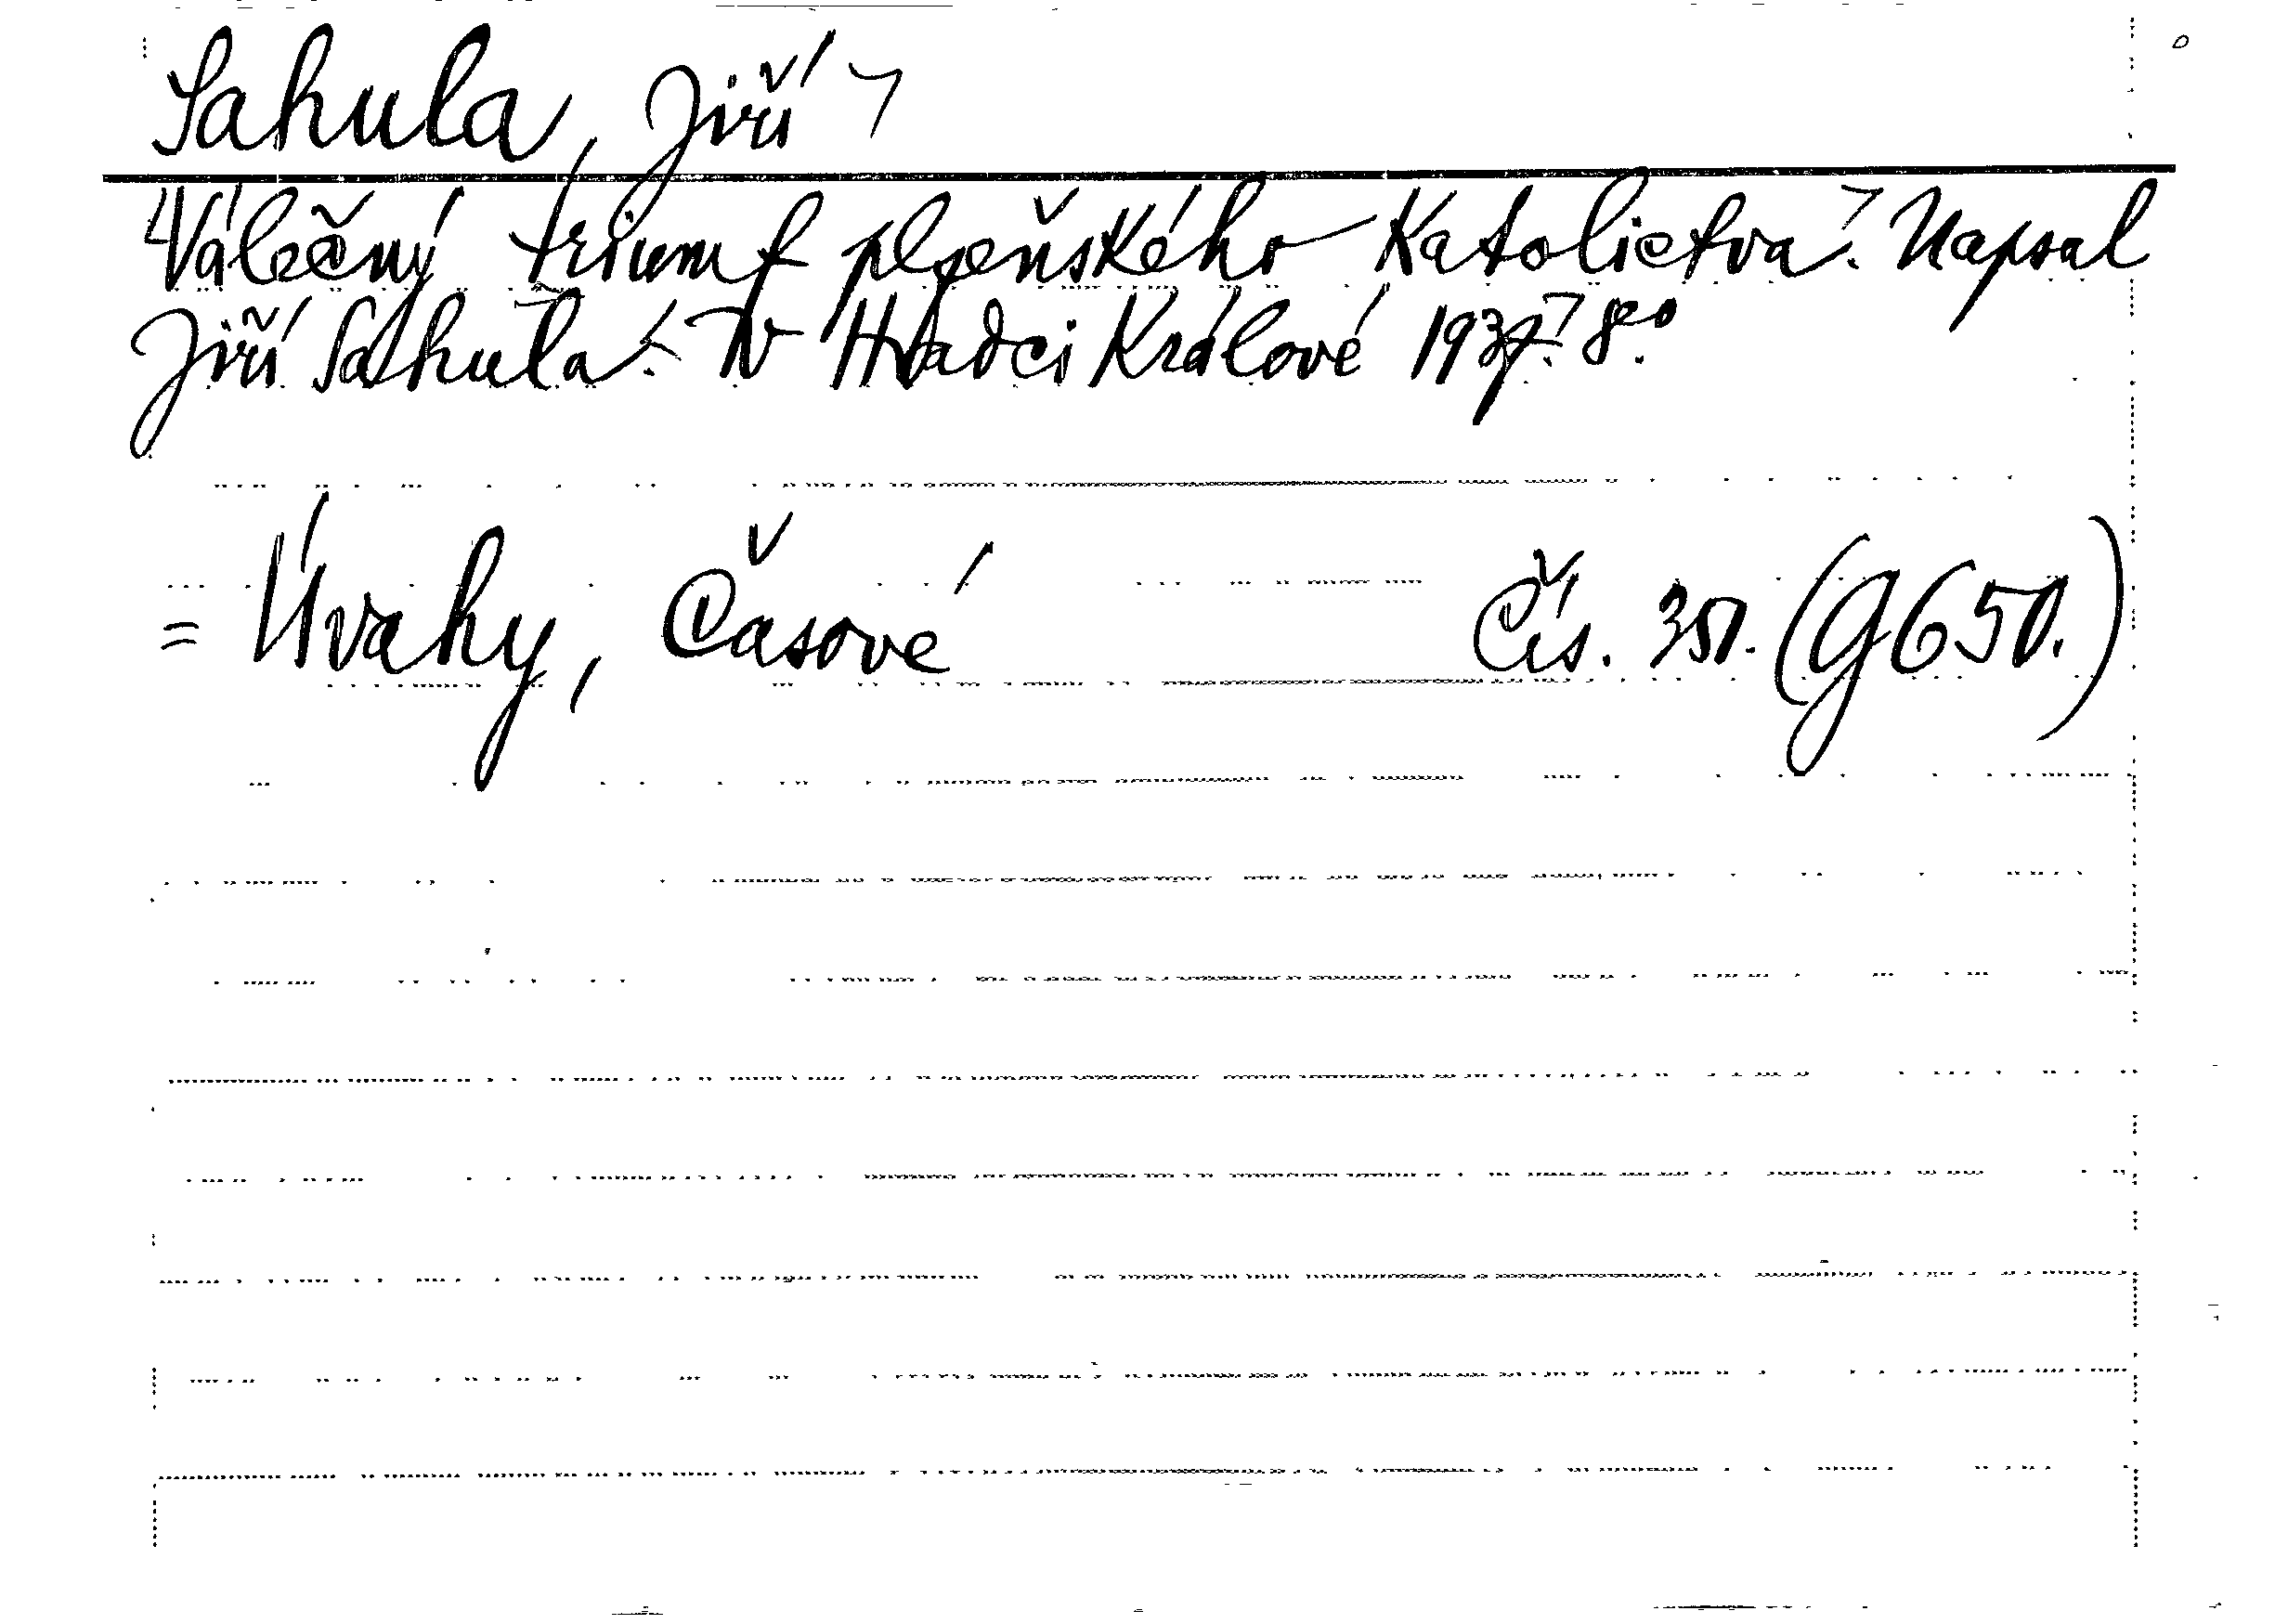 Sahula, Jiří
Válečný triumf plzeňského Katolictva. Napsal
Jiří Sahula. V Hradci Králové 1937. 8°
= Úvahy, Časové Čís. 351. (G 650.)